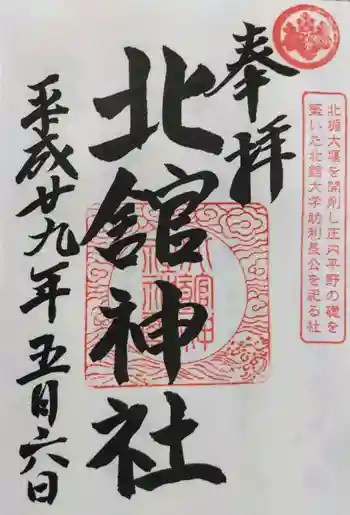 奉拝
北楯大堰を開削し庄内平野の礎を
築いた北館大学助利長公を祀る社
北舘神社
平成廿九年五月六日